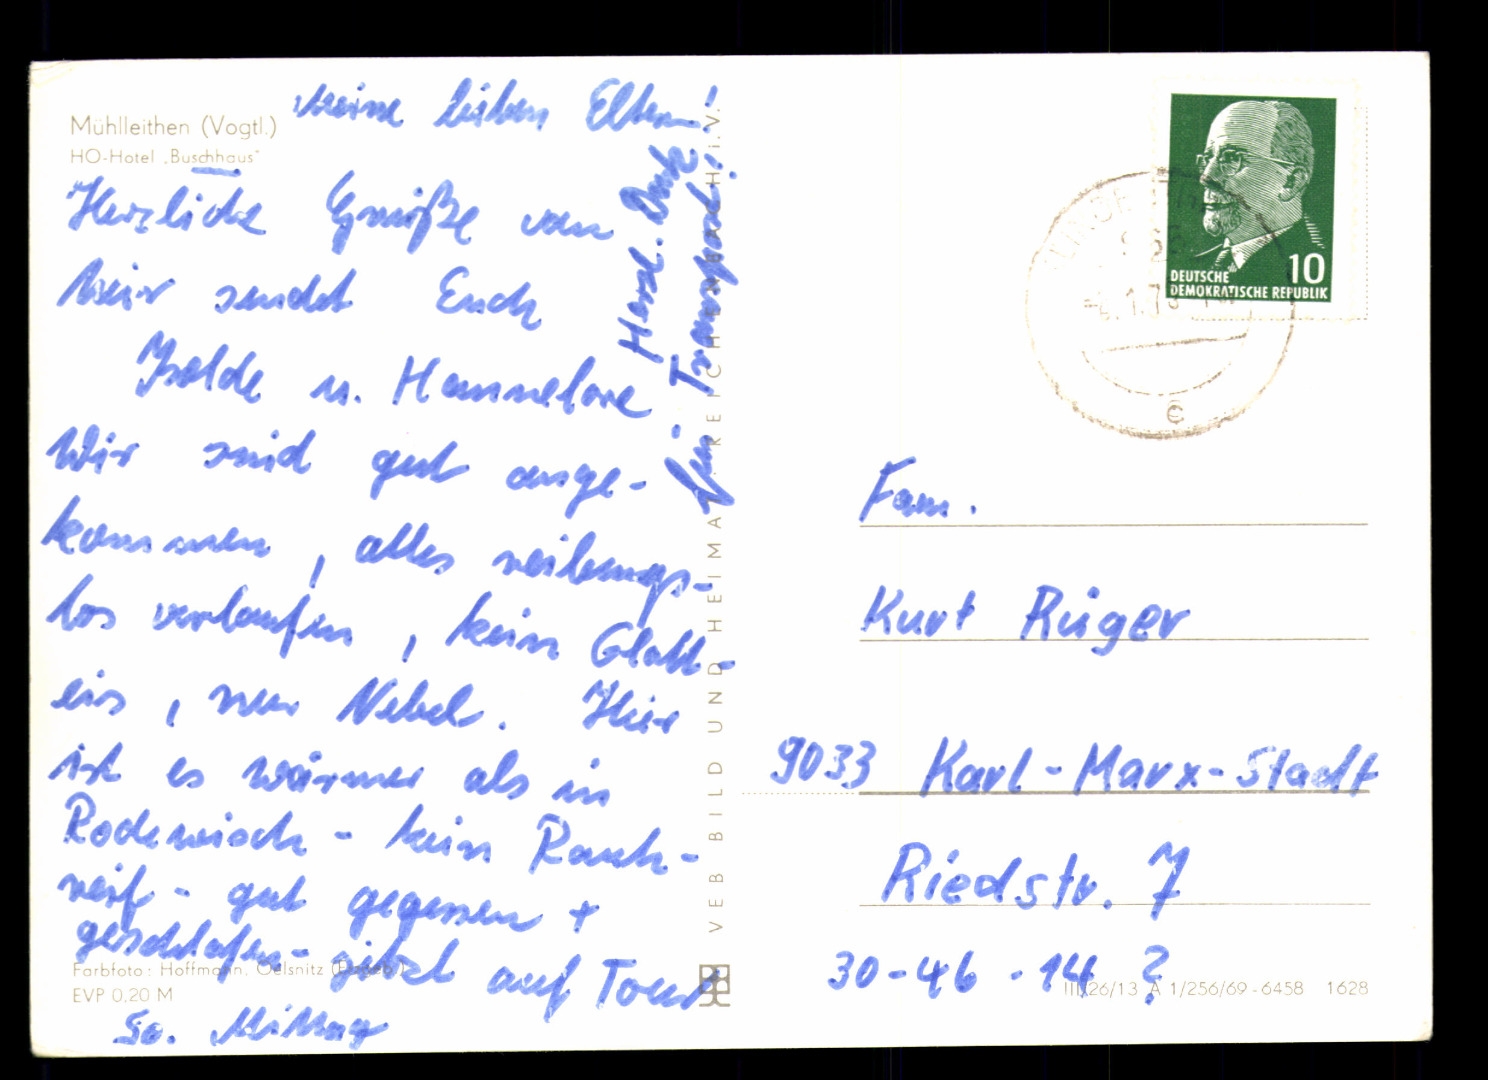 Mühlleithen (Vogtl.)
HO-Hotel „Buschhaus"
Meine lieben Eltern!
Herzliche Grüße von
hier sendet Euch
Isolde u. Hannelore
Wir sind gut ange-
kommen, alles reibungs-
los verlaufen, kein Glatt-
eis, nur Nebel. Hier
ist es wärmer als in
Rodewisch - kein Rauh-
reif - gut gegessen +
geschlafen - jetzt auf Tour
So. Mittag
Herzl. Dank
für Transport!
Farbfoto: Hoffmann, Oelsnitz (Erzgeb.)
EVP 0,20 M
VEB BILD UND HEIMAT REICHENBACH i. V.
10
DEUTSCHE
DEMOKRATISCHE REPUBLIK
c
Fam.
Kurt Rüger
9033 Karl-Marx-Stadt
Riedstr. 7
30-46-14 ?
III/26/13 A 1/256/69-6458 1628